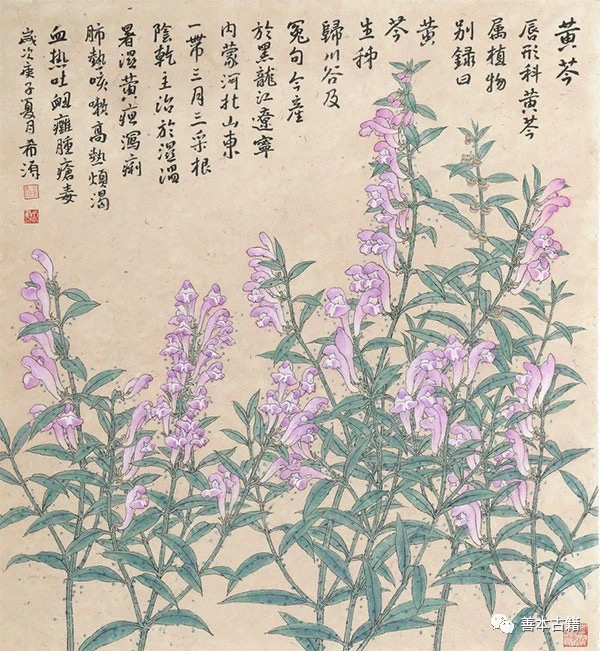 黄芩
辰形科黄芩
属植物
别録曰
黄
芩
生秭
歸川谷及
冤句今産
於黑龍江遼寧
内蒙河北山東
一带三月三采根
陰乾主治於濕温
暑湿黄疸瀉痢
肺熱咳嗽高熱煩渴
血热吐衄癰腫瘡毒
歲次庚子夏月希
善本古籍